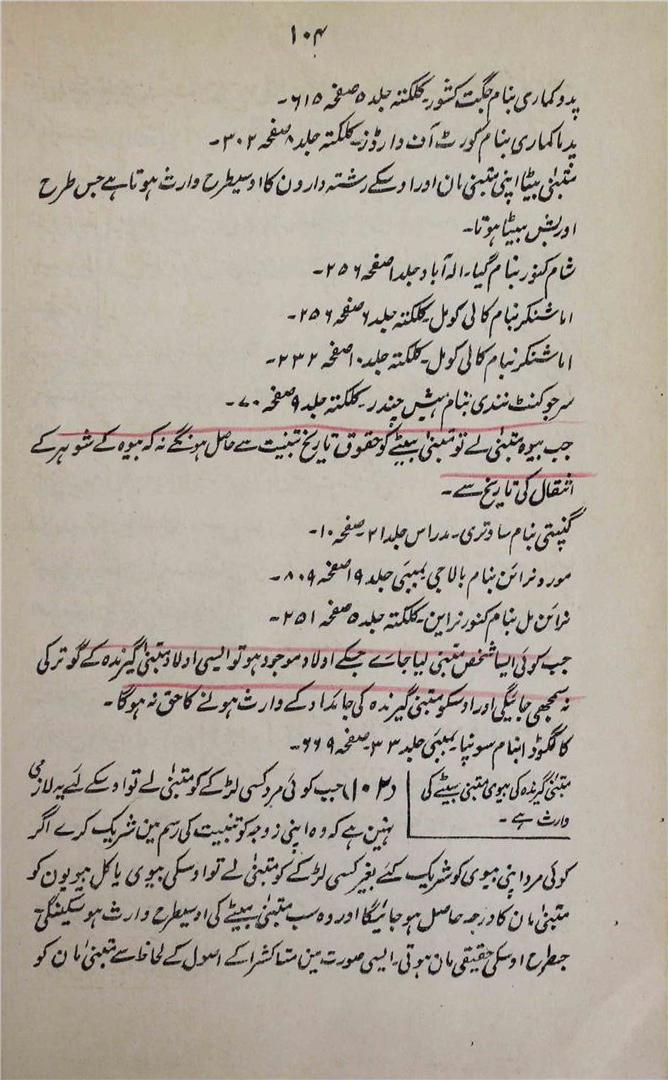 ۱۰۴
پدو کماری بنام جگت کشور۔ کلکتہ جلد ۵ صفحہ ۶۱۵۔
پدما کماری بنام کورٹ آف وارڈز۔ کلکتہ جلد ۸ صفحہ ۳۰۲۔
متبنیٰ بیٹا اپنی متبنیٰ مان اور اوسکے رشتہ دارون کا اوسیطرح وارث ہوتا ہے جس طرح
اوریش بیٹا ہوتا۔
شام کنور بنام گیا۔ الہ آباد جلد ۱ صفحہ ۲۵۶۔
اماشنکر بنام کالی کومل۔ کلکتہ جلد ۶ صفحہ ۲۵۶۔
اماشنکر بنام کالی کومل۔ کلکتہ جلد ۱۰ صفحہ ۲۳۲۔
سرجوکنٹ نندی بنام مہیش چندر۔ کلکتہ جلد ۹ صفحہ ۷۰۔
جب بیوہ متبنیٰ لے تو متبنیٰ بیٹے کو حقوق تاریخ تبنیت سے حاصل ہونگے نہ کہ بیوہ کے شوہر کے
انتقال کی تاریخ سے۔
گنپتی بنام ساوتری۔ مدراس جلد ۲۱۔ صفحہ ۱۰۔
مورو نرائن بنام بالاجی بمبئی جلد ۱۹ صفحہ ۸۰۹۔
نرائن مل بنام کنور نراین۔ کلکتہ جلد ۵ صفحہ ۲۵۱۔
جب کوئی ایسا شخص متبنیٰ لیا جاے جسکے اولاد موجود ہو تو ایسی اولاد متبنیٰ گیرندہ کے گوتر کی
نہ سمجھی جائیگی اور اوسکو متبنیٰ گیرندہ کی جائداد کے وارث ہونے کا حق نہ ہوگا۔
کالگوڈا بنام سونپا۔ بمبئی جلد ۳۳۔ صفحہ ۶۶۹۔
متبنیٰ گیرندہ کی بیوی متبنیٰ بیٹے کی
وارث ہے۔
(۱۰۲) جب کوئی مرد کسی لڑکے کو متبنیٰ لے تو اوسکے لئے یہ لازمی
نہین ہے کہ وہ اپنی زوجہ کو تبنیت کی رسم مین شریک کرے اگر
کوئی مرد اپنی بیوی کو شریک کئے بغیر کسی لڑکے کو متبنیٰ لے تو اوسکی بیوی یا کل بیویون کو
متبنیٰ مان کا درجہ حاصل ہو جائیگا اور وہ سب متبنیٰ بیٹے کی اوسیطرح وارث ہو سکینگی۔
جطرح اوسکی حقیقی مان ہوتی۔ ایسی صورت مین متاکشرا کے اسول کے لحاظ سے متبنیٰ مان کو